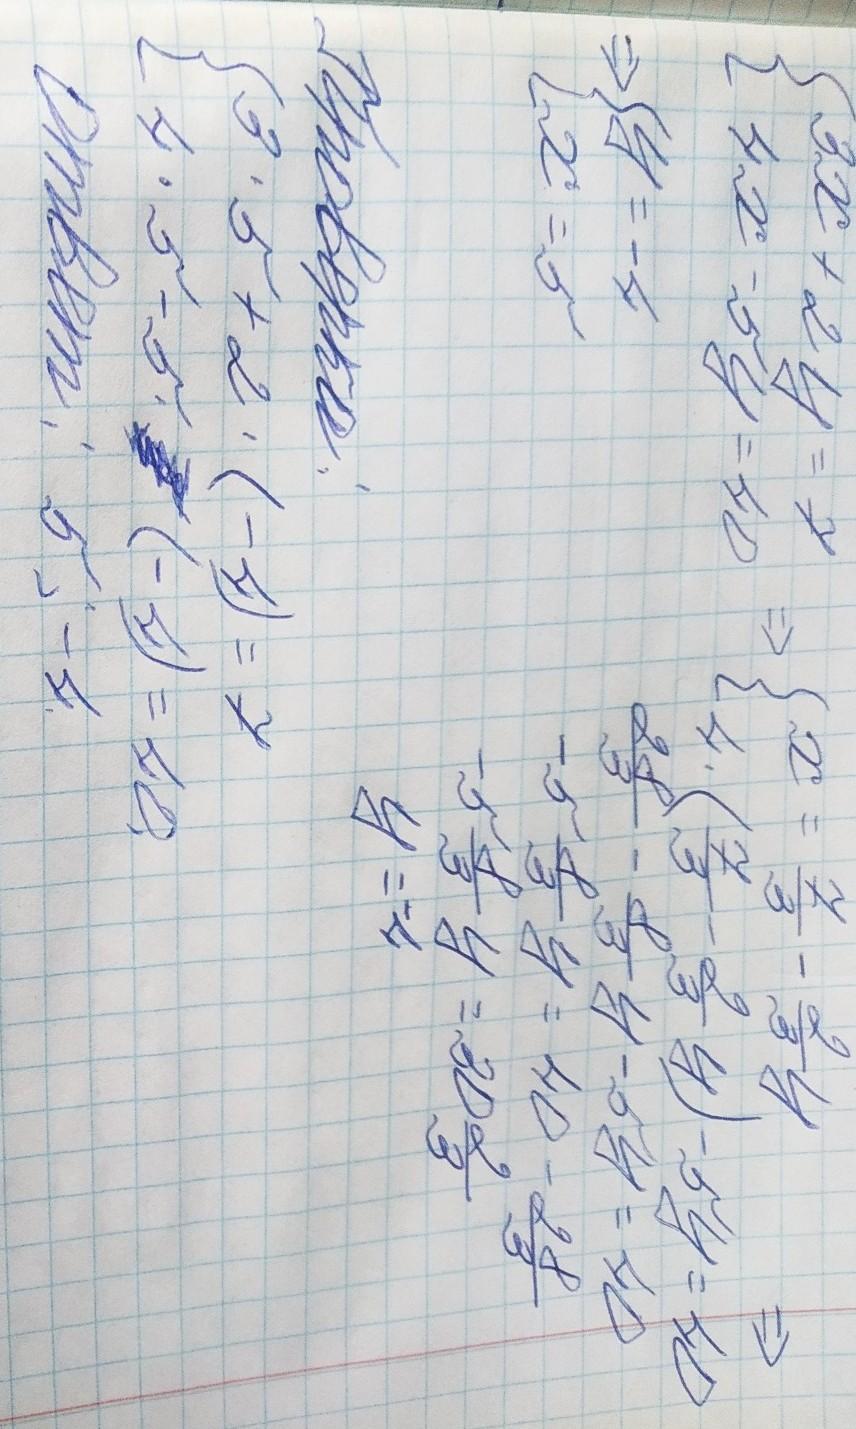 { 3x + 2y = 7
4x - 5y = 40
⇒ { x = 7/3 - 2/3 y
4·(7/3 - 2/3 y) - 5y = 40 ⇒
28/3 - 8/3 y - 5y = 40
-5 8/3 y = 40 - 28/3
-5 8/3 y = 30 2/3
y = -4
⇒ { y = -4
x = 5
Проверка:
{ 3·5 + 2·(-4) = 7
4·5 - 5·(-4) = 40
Ответ: 5; -4.